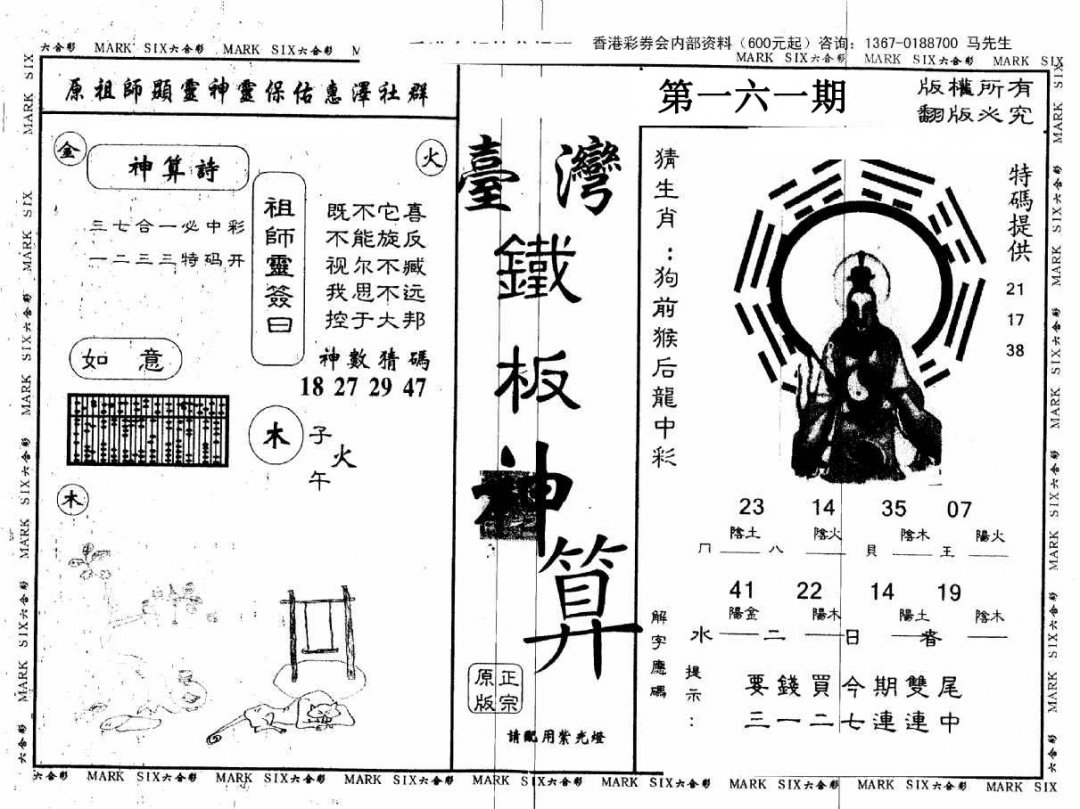 香港彩券会内部资料（600元起）咨询：1367-0188700 马先生
六合彩 MARK SIX六合彩 MARK SIX六合彩 M
MARK SIX六合彩 MARK SIX六合彩 MARK SIX
原祖師顯靈神靈保佑惠澤社群
金
神算詩
火
三七合一必中彩
一二三三特码开
祖師靈簽曰
既不它喜
不能旋反
视尔不臧
我思不远
控于大邦
如意
神數猜碼
18 27 29 47
木
子
火
午
木
臺灣
鐵
板
神
算
正宗
原版
請配用紫光燈
第一六一期
版權所有
翻版必究
猜生肖：狗前猴后龍中彩
特碼提供
21
17
38
23 14 35 07
陰土 陰火 陰木 陽火
冂 八 貝 王
41 22 14 19
陽金 陽木 陽土 陰木
水 二 日
解字應碼
提示：
要錢買今期雙尾
三一二七連連中
六合彩 MARK SIX六合彩 MARK SIX六合彩 MARK SIX六合彩 MARK SIX六合彩 MARK SIX六合彩 MARK SIX六合彩 MARK SIX六合彩 MARK SIX